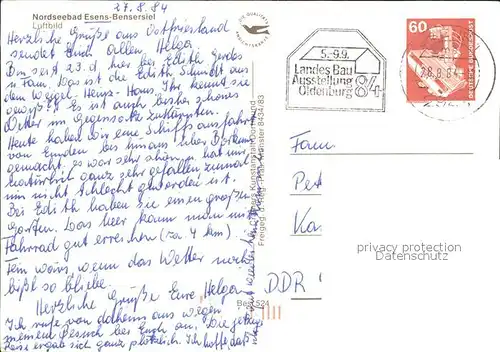 27.8.84
Nordseebad Esens-Bensersiel
Luftbild
Herzliche Grüße aus Ostfriesland
sendet Euch allen, Helga
Bin seit 23.d. hier bei Edith Gerdes
u Fam. Das ist die Edith Schmidt aus
dem Weigel-Heinz-Haus. Ihr kennt sie
gewiß? Es ist auch bisher schönes
Wetter im Gegensatz
Heute haben wir eine Schiffsausfahrt
von Emden bis hinaus über Borkum
gemacht, es war sehr schön, hat mir
natürlich ganz sehr gefallen zumal
mir nicht schlecht geworden ist.
Bei Edith haben sie einen großen
Garten. Das Meer kann man im
Fahrrad gut erreichen (ca. 7 km)
Fein wärs, wenn das Wetter noch
bißl so bliebe.
Herzliche Grüße Eure Helga
Ich rufe von daheim aus wegen
meinem Besuch bei Euch an. Die jetzige
Reise ergab sich ganz plötzlich. Ich hoffe, daß
DIE QUALITÄTS
5.-9.9.
Landes Bau
Ausstellung
Oldenburg 84
28.8.84
60
DEUTSCHE BUNDESPOST
Freigeg. Münster 8434/83
Best 524
Fam
Pet
Ka
DDR
privacy protection
© ansichtskarten-center